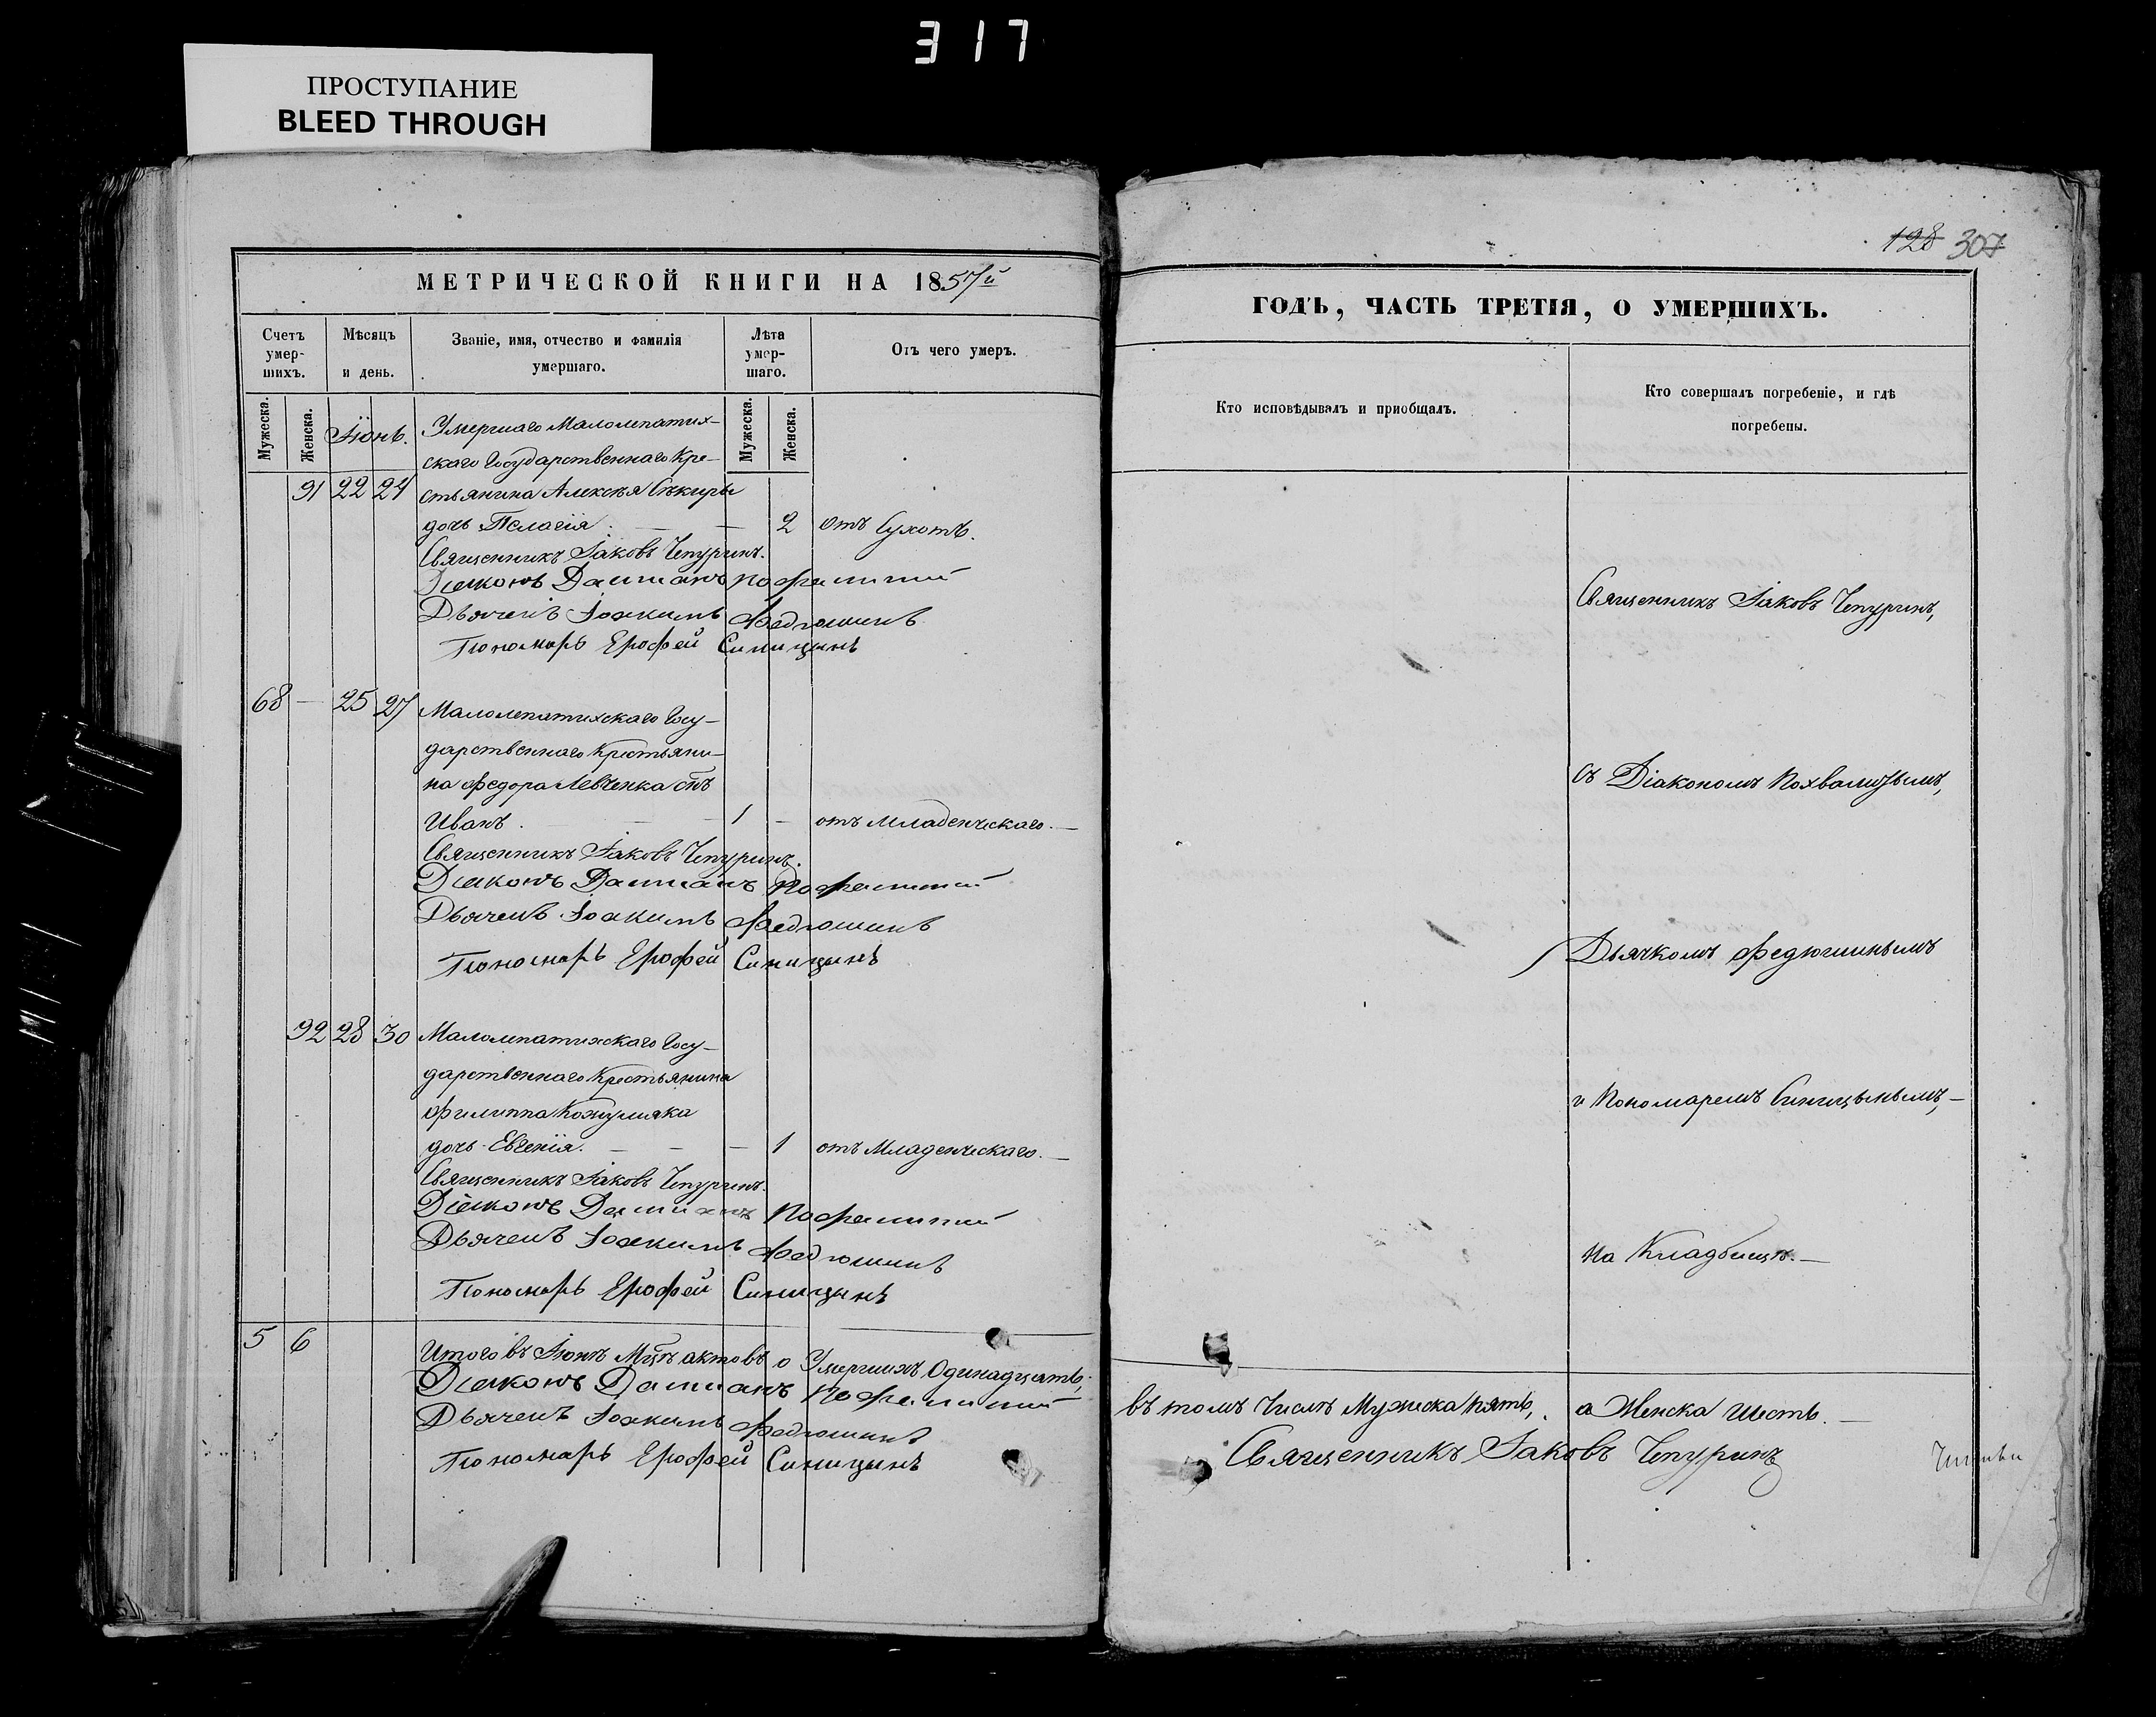 317
ПРОСТУПАНИЕ
BLEED THROUGH
МЕТРИЧЕСКОЙ КНИГИ НА 1857й
Счетъ умер-шихъ.
Мѣсяцъ и день.
Званіе, имя, отчество и фамилія умершаго.
Лѣта умер-шаго.
Отъ чего умеръ.
Мужеска.
Женска.
Мужеска.
Женска.
Іюнь.
Умершаго Малолепатих-
скаго Государственнаго Кре-
91 22 24 стьянина Алексѣя Сѣкиры
дочь Пелагія. — — 2 отъ Сухотъ.
Священникъ Іаковъ Чепуринъ.
Діаконъ Даміанъ
Дьячекъ Іоакимъ Федюшинъ
Пономарь Ерофей Синицынъ
68 — 25 27 Малолепатихскаго Госу-
дарственнаго Крестьяни-
на Федора Левченка снъ
Иванъ. — — 1 — отъ Младенческаго. —
Священникъ Іаковъ Чепуринъ.
Діаконъ Даміанъ
Дьячекъ Іоакимъ Федюшинъ
Пономарь Ерофей Синицынъ
92 28 30 Малолепатихскаго Госу-
дарственнаго Крестьянина
Филиппа Кожумяка
дочь Евгенія. — — — 1 отъ Младенческаго. —
Священникъ Іаковъ Чепуринъ.
Діаконъ Даміанъ
Дьячекъ Іоакимъ Федюшинъ
Пономарь Ерофей Синицынъ
5 6 Итого въ Іюнѣ Мцѣ актовъ о Умершихъ Одинадцать,
Діаконъ Даміанъ
Дьячекъ Іоакимъ Федюшинъ
Пономарь Ерофей Синицынъ
128 307
ГОДЪ, ЧАСТЬ ТРЕТІЯ, О УМЕРШИХЪ.
Кто исповѣдывалъ и приобщалъ.
Кто совершалъ погребеніе, и гдѣ
погребены.
Священникъ Іаковъ Чепуринъ,
съ Діакономъ
Дьячкомъ Федюшинымъ
и Пономаремъ Синицынымъ, —
на Кладбищѣ. —
въ томъ Числѣ Мужеска пять, а Женска Шесть. —
Священникъ Іаковъ Чепуринъ